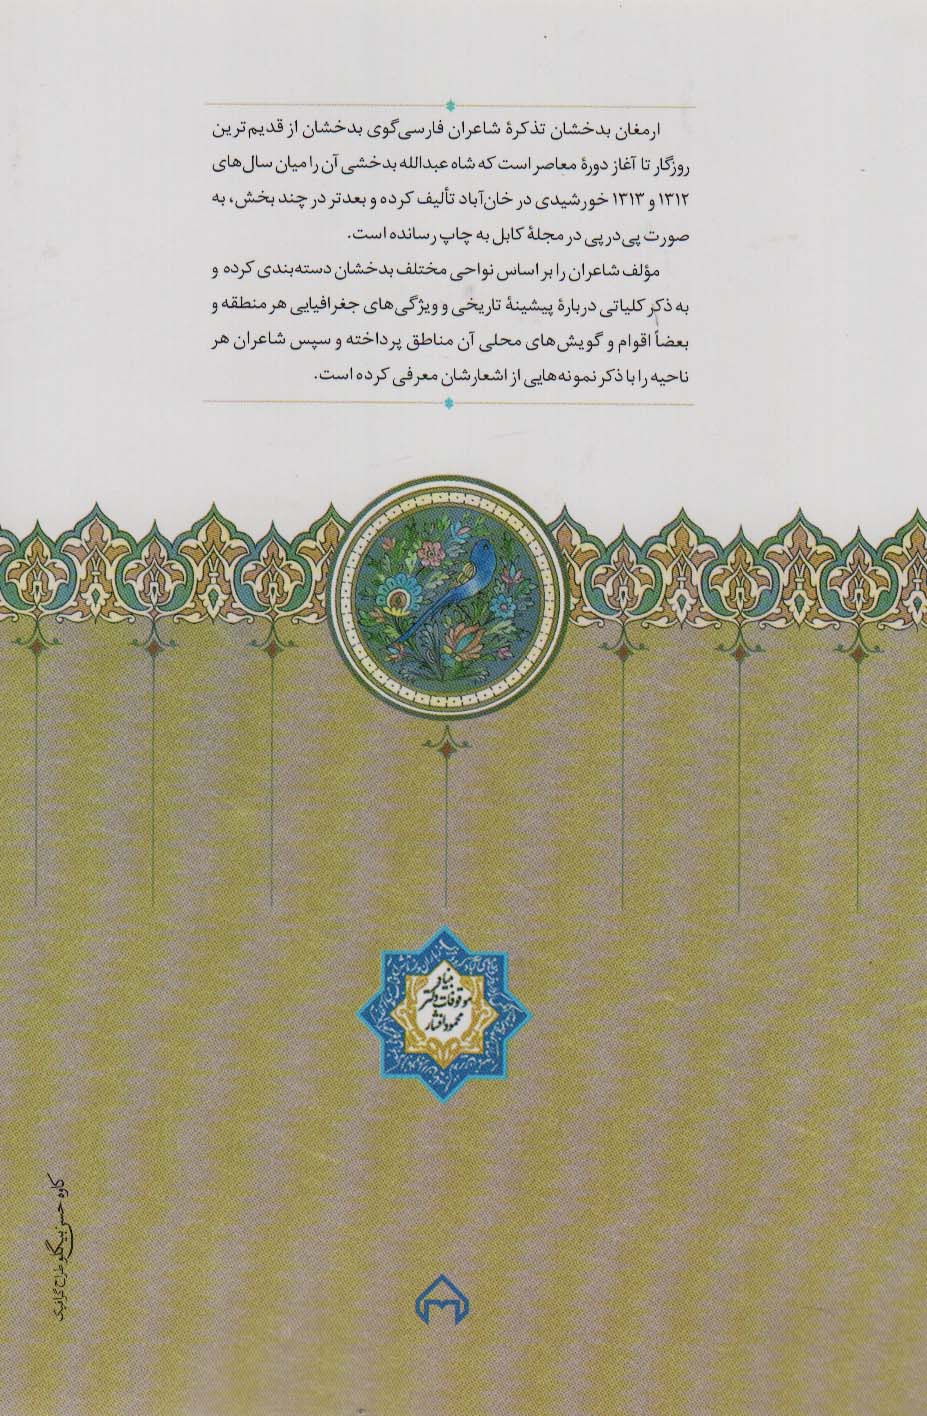 ارمغان بدخشان تذکرهٔ شاعران فارسی‌گوی بدخشان از قدیم‌ترین
روزگار تا آغاز دورهٔ معاصر است که شاه عبدالله بدخشی آن را میان سال‌های
۱۳۱۲ و ۱۳۱۳ خورشیدی در خان‌آباد تألیف کرده و بعدتر در چند بخش، به
صورت پی‌در‌پی در مجلهٔ کابل به چاپ رسانده است.
مؤلف شاعران را بر اساس نواحی مختلف بدخشان دسته‌بندی کرده و
به ذکر کلیاتی دربارهٔ پیشینهٔ تاریخی و ویژگی‌های جغرافیایی هر منطقه و
بعضاً اقوام و گویش‌های محلی آن مناطق پرداخته و سپس شاعران هر
ناحیه را با ذکر نمونه‌هایی از اشعارشان معرفی کرده است.
بنیاد
موقوفات دکتر
محمود افشار
کاوه حسن بیگلو طراح گرافیک